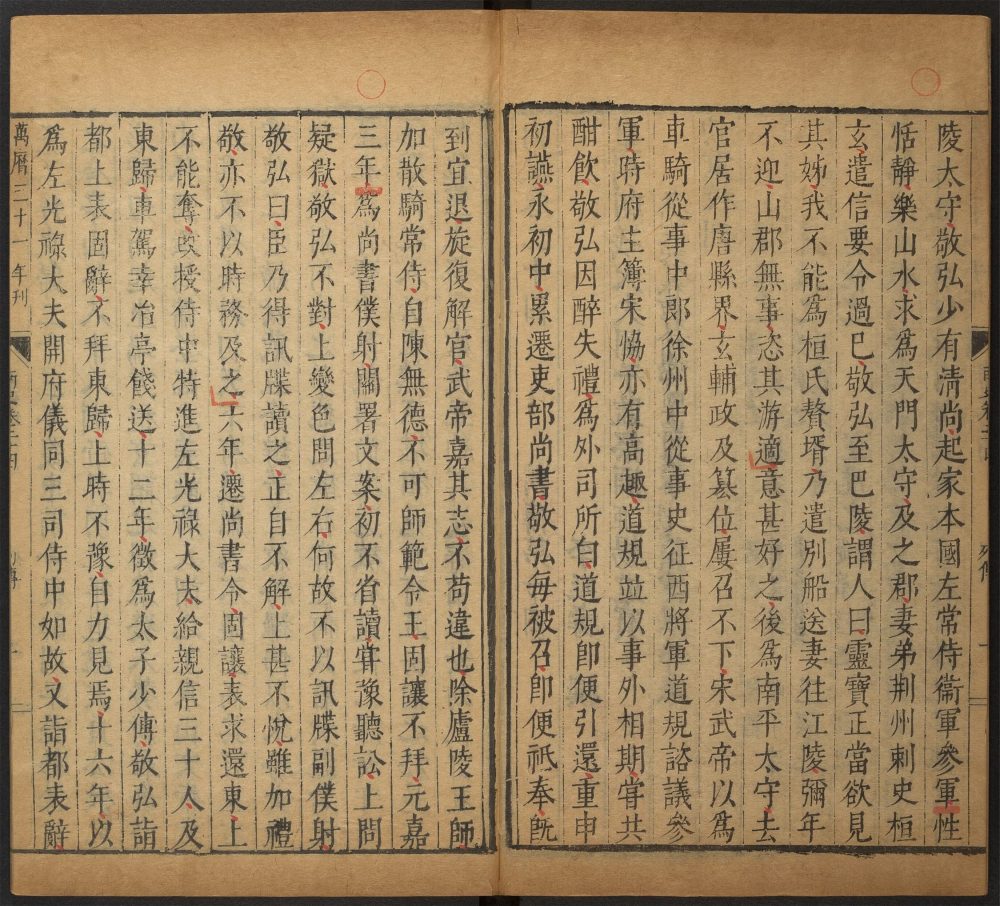 陵太守敬弘少有清尚起家本國左常侍衞軍參軍性
恬靜樂山水求爲天門太守及之郡妻弟荆州刺史桓
玄遣信要令過巳敬弘至巴陵謂人曰靈寶正當欲見
其姊我不能爲桓氏贅壻乃遣別船送妻往江陵彌年
不迎山郡無事恣其游適意甚好之後爲南平太守去
官居作唐縣界玄輔政及簒位屢召不下宋武帝以爲
車騎從事中郎徐州中從事史征西將軍道規諮議參
軍時府主簿宋恊亦有高趣道規並以事外相期嘗共
酣飲敬弘因醉失禮爲外司所白道規卽便引還重申
初讌永初中累遷吏部尚書敬弘每被召卽便祗奉旣
到宜退旋復解官武帝嘉其志不苟違也除廬陵王師
加散騎常侍自陳無德不可師範令王固讓不拜元嘉
三年爲尚書僕射關署文案初不省讀甞豫聽訟上問
疑獄敬弘不對上變色問左右何故不以訊牒副僕射
敬弘曰臣乃得訊牒讀之正自不解上甚不悅雖加禮
敬亦不以時務及之六年遷尚書令固讓表求還東上
不能奪改授侍中特進左光祿大夫給親信三十人及
東歸車駕幸冶亭餞送十二年徵爲太子少傅敬弘詣
都上表固辭不拜東歸上時不豫自力見焉十六年以
爲左光祿大夫開府儀同三司侍中如故又詣都表辭
萬曆三十一年刊